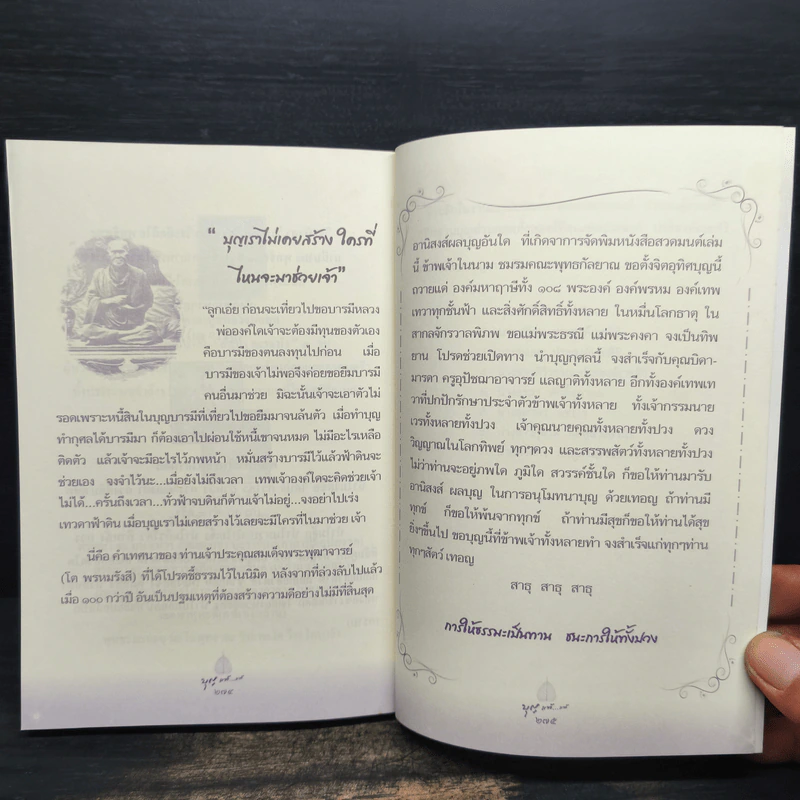 " บุญเราไม่เคยสร้าง ใครที่
ไหนจะมาช่วยเจ้า"
"ลูกเอ๋ย ก่อนจะเที่ยวไปขอบารมีหลวง
พ่อองค์ใดเจ้าจะต้องมีทุนของตัวเอง
คือบารมีของตนลงทุนไปก่อน เมื่อ
บารมีของเจ้าไม่พอจึงค่อยขอยืมบารมี
คนอื่นมาช่วย มิฉะนั้นเจ้าจะเอาตัวไม่
รอดเพราะหนี้สินในบุญบารมีที่เที่ยวไปขอยืมมาจนล้นตัว เมื่อทำบุญ
ทำกุศลได้บารมีมา ก็ต้องเอาไปผ่อนใช้หนี้เขาจนหมด ไม่มีอะไรเหลือ
ติดตัว แล้วเจ้าจะมีอะไรไว้ภพหน้า หมั่นสร้างบารมีไว้แล้วฟ้าดินจะ
ช่วยเอง จงจำไว้นะ...เมื่อยังไม่ถึงเวลา เทพเจ้าองค์ใดจะคิดช่วยเจ้า
ไม่ได้...ครั้นถึงเวลา...ทั่วฟ้าจบดินก็ต้านเจ้าไม่อยู่...จงอย่าไปเร่ง
เทวดาฟ้าดิน เมื่อบุญเราไม่เคยสร้างไว้เลยจะมีใครที่ไหนมาช่วย เจ้า
นี่คือ คำเทศนาของ ท่านเจ้าประคุณสมเด็จพระพุฒาจารย์
(โต พรหมรังสี) ที่ได้โปรดชี้ธรรมไว้ในนิมิต หลังจากที่ล่วงลับไปแล้ว
เมื่อ ๑๐๐ กว่าปี อันเป็นปฐมเหตุที่ต้องสร้างความดีอย่างไม่มีที่สิ้นสุด
บุญ
๒๗๔
อานิสงส์ผลบุญอันใด ที่เกิดจาการจัดพิมหนังสือสวดมนต์เล่ม
นี้ ข้าพเจ้าในนาม ชมรมคณะพุทธกัลยาณ ขอตั้งจิตอุทิศบุญนี้
ถวายแด่ องค์มหาฤาษีทั้ง ๑๐๘ พระองค์ องค์พรหม องค์เทพ
เทวาทุกชั้นฟ้า และสิ่งศักดิ์สิทธิ์ทั้งหลาย ในหมื่นโลกธาตุ ใน
สากลจักรวาลพิภพ ขอแม่พระธรณี แม่พระคงคา จงเป็นทิพ
ยาน โปรดช่วยเปิดทาง นำบุญกุศลนี้ จงสำเร็จกับคุณบิดา-
มารดา ครูอุปัชฌาอาจารย์ แลญาติทั้งหลาย อีกทั้งองค์เทพเท
วาที่ปกปักรักษาประจำตัวข้าพเจ้าทั้งหลาย ทั้งเจ้ากรรมนาย
เวรทั้งหลายทั้งปวง เจ้าคุณนายคุณทั้งหลายทั้งปวง ดวง
วิญญาณในโลกทิพย์ ทุกๆดวง และสรรพสัตว์ทั้งหลายทั้งปวง
ไม่ว่าท่านจะอยู่ภพใด ภูมิใด สวรรค์ชั้นใด ก็ขอให้ท่านมารับ
อานิสงส์ ผลบุญ ในการอนุโมทนาบุญ ด้วยเทอญ ถ้าท่านมี
ทุกข์ ก็ขอให้พ้นจากทุกข์ ถ้าท่านมีสุขก็ขอให้ท่านได้สุข
ยิ่งๆขึ้นไป ขอบุญนี้ที่ข้าพเจ้าทั้งหลายทำ จงสำเร็จแก่ทุกๆท่าน
ทุกๆสัตว์ เทอญ
สาธุ สาธุ สาธุ
การให้ธรรมะเป็นทาน ชนะการให้ทั้งปวง
บุญ
๒๗๕